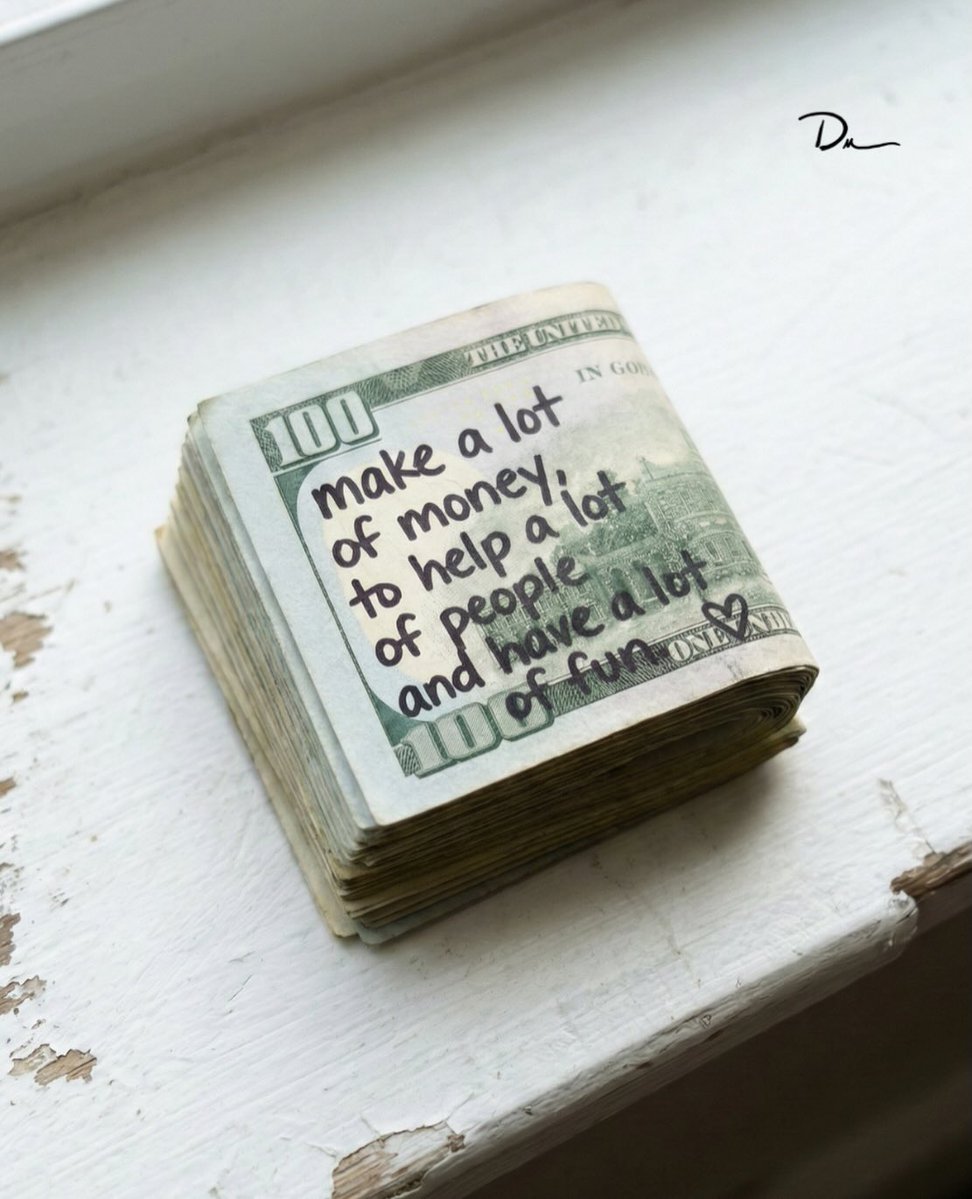 Dm
THE UNITED
IN GOD
100
make a lot
of money,
to help a lot
of people
and have a lot
of fun. ♡
100